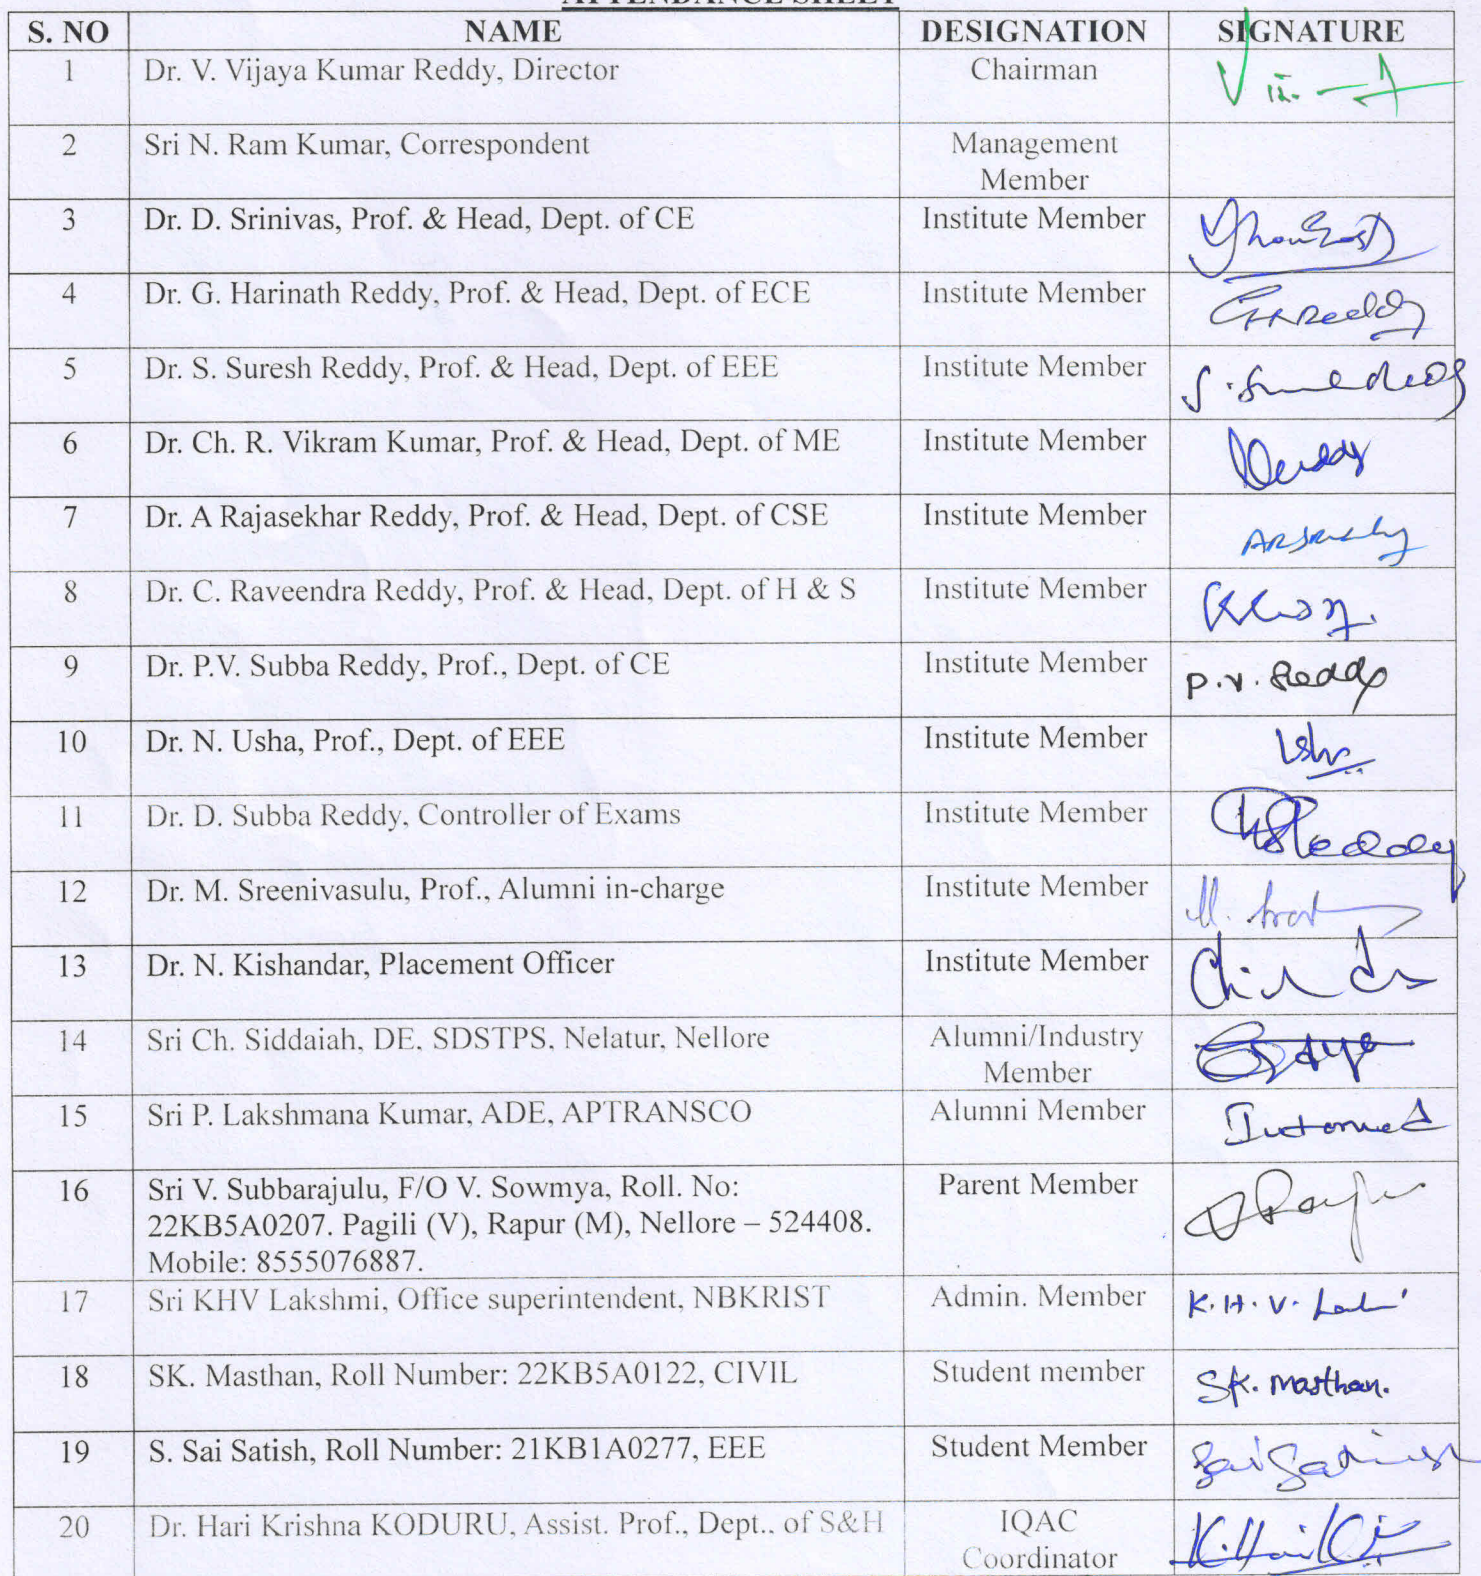 ATTENDANCE SHEET
S. NO NAME DESIGNATION SIGNATURE
1 Dr. V. Vijaya Kumar Reddy, Director Chairman
2 Sri N. Ram Kumar, Correspondent Management
Member
3 Dr. D. Srinivas, Prof. & Head, Dept. of CE Institute Member
4 Dr. G. Harinath Reddy, Prof. & Head, Dept. of ECE Institute Member GHReddy
5 Dr. S. Suresh Reddy, Prof. & Head, Dept. of EEE Institute Member
6 Dr. Ch. R. Vikram Kumar, Prof. & Head, Dept. of ME Institute Member
7 Dr. A Rajasekhar Reddy, Prof. & Head, Dept. of CSE Institute Member
8 Dr. C. Raveendra Reddy, Prof. & Head, Dept. of H & S Institute Member
9 Dr. P.V. Subba Reddy, Prof., Dept. of CE Institute Member P.V. Reddy
10 Dr. N. Usha, Prof., Dept. of EEE Institute Member
11 Dr. D. Subba Reddy, Controller of Exams Institute Member
12 Dr. M. Sreenivasulu, Prof., Alumni in-charge Institute Member
13 Dr. N. Kishandar, Placement Officer Institute Member
14 Sri Ch. Siddaiah, DE, SDSTPS, Nelatur, Nellore Alumni/Industry
Member
15 Sri P. Lakshmana Kumar, ADE, APTRANSCO Alumni Member Informed
16 Sri V. Subbarajulu, F/O V. Sowmya, Roll. No: Parent Member
22KB5A0207. Pagili (V), Rapur (M), Nellore – 524408.
Mobile: 8555076887.
17 Sri KHV Lakshmi, Office superintendent, NBKRIST Admin. Member K.H.V.
18 SK. Masthan, Roll Number: 22KB5A0122, CIVIL Student member SK. Masthan.
19 S. Sai Satish, Roll Number: 21KB1A0277, EEE Student Member Sai Satish
20 Dr. Hari Krishna KODURU, Assist. Prof., Dept.. of S&H IQAC
Coordinator